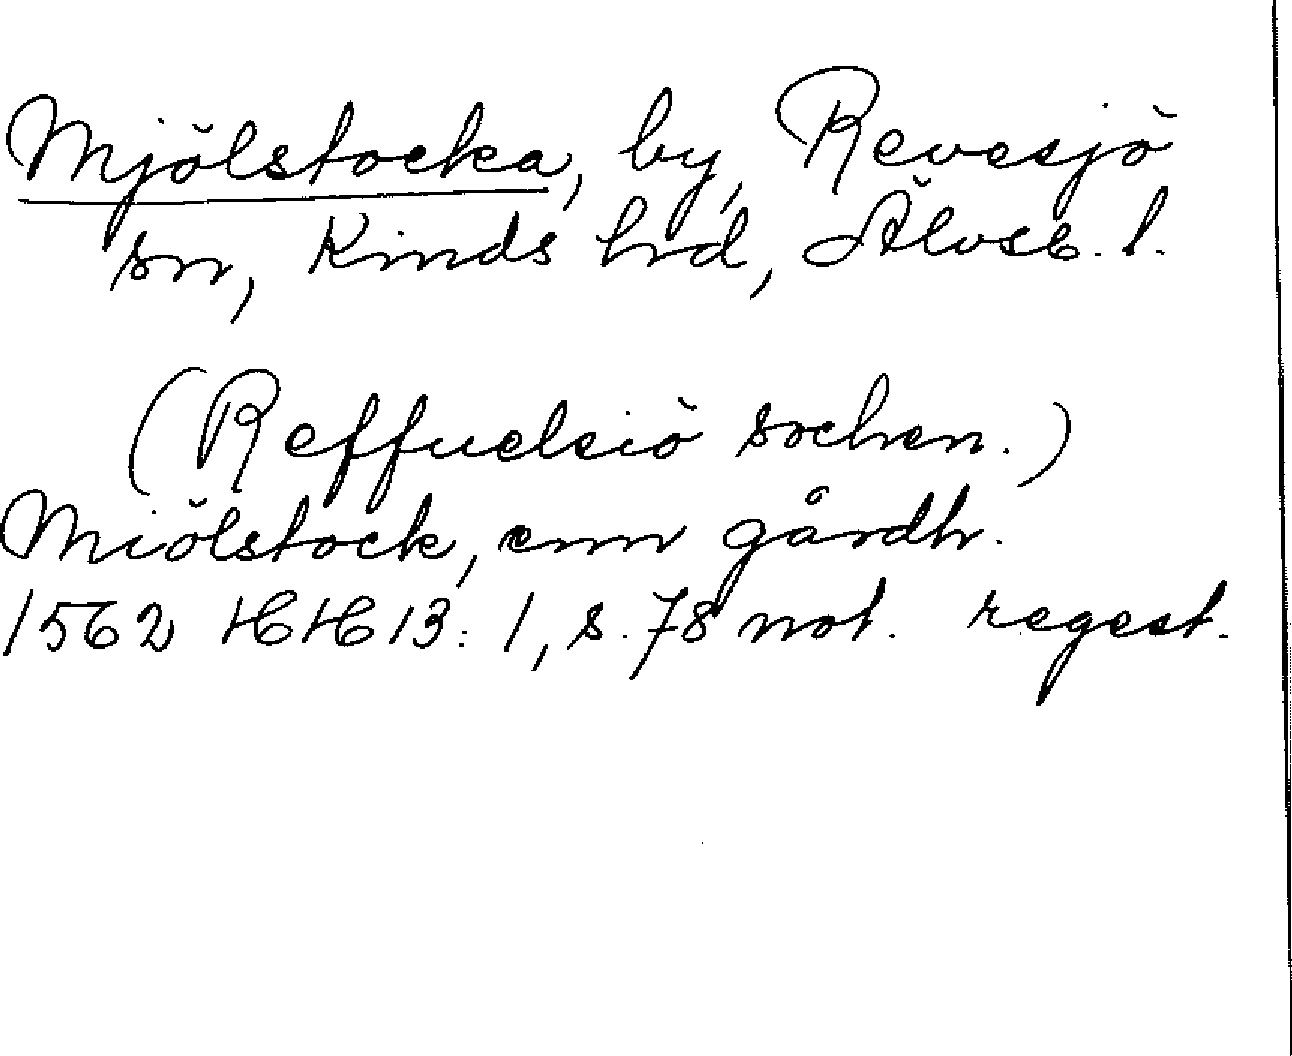 Mjölstocka, by, Revesjö
sn, Kinds hd, Älvsb. l.
(Reffuelsiö sochen.)
Miölstock, enn gårdh.
1562 HH 13: 1, s. 78 not. regest.